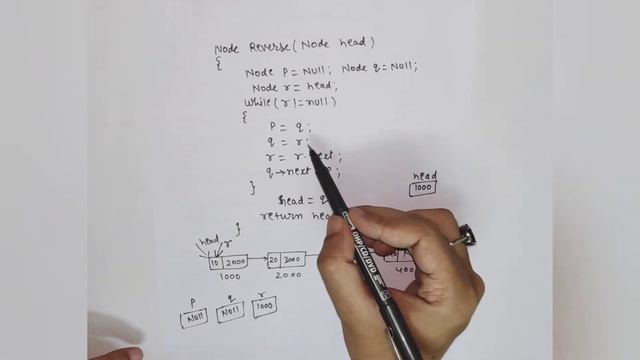 Node Reverse (Node head)
{
Node P = NUll; Node q = NUll;
Node r = head;
While (r != null)
{
P = q;
q = r;
r = r.next;
q→next ;
}
head = q
return
}
head
1000
head r
10 2000
1000
20 3000
2000
P q r
NUll NUll 1000
OHP/CD/DVD